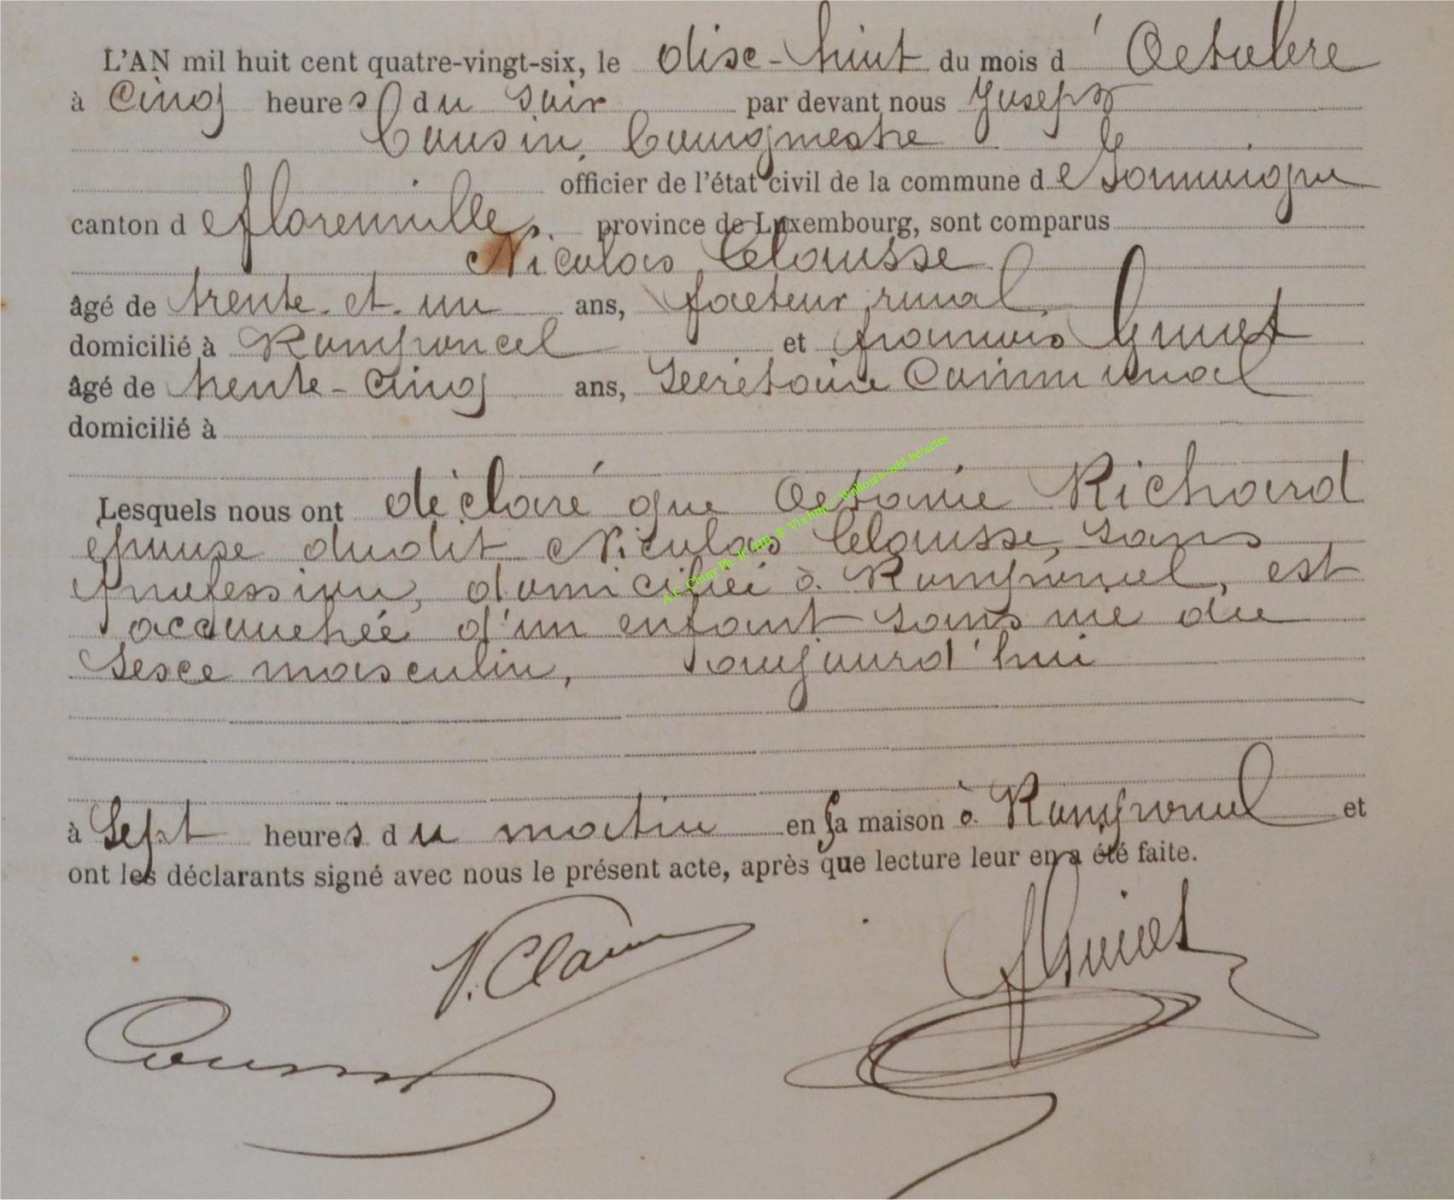 L'AN mil huit cent quatre-vingt-six, le dixe-huit du mois d'Octobre
à Cinq heures du soir par devant nous Joseph
Cousin, bourgmestre
officier de l'état civil de la commune de
canton de florenville, province de Luxembourg, sont comparus
Nicolas Clausse
âgé de trente-et-un ans, facteur rural,
domicilié à Romponcel et françois Guiot
âgé de trente-cinq ans, Secrétaire Communal
domicilié à
Lesquels nous ont déclaré que Octavie Richard
épouse dudit Nicolas Clausse, sans
profession, domiciliée à Romponcel, est
accouchée d'un enfant sans vie du
sexe masculin, aujourd'hui
à Sept heures du matin en sa maison à Romponcel et
ont les déclarants signé avec nous le présent acte, après que lecture leur en a été faite.
N. Clausse
Guiot
Cousin